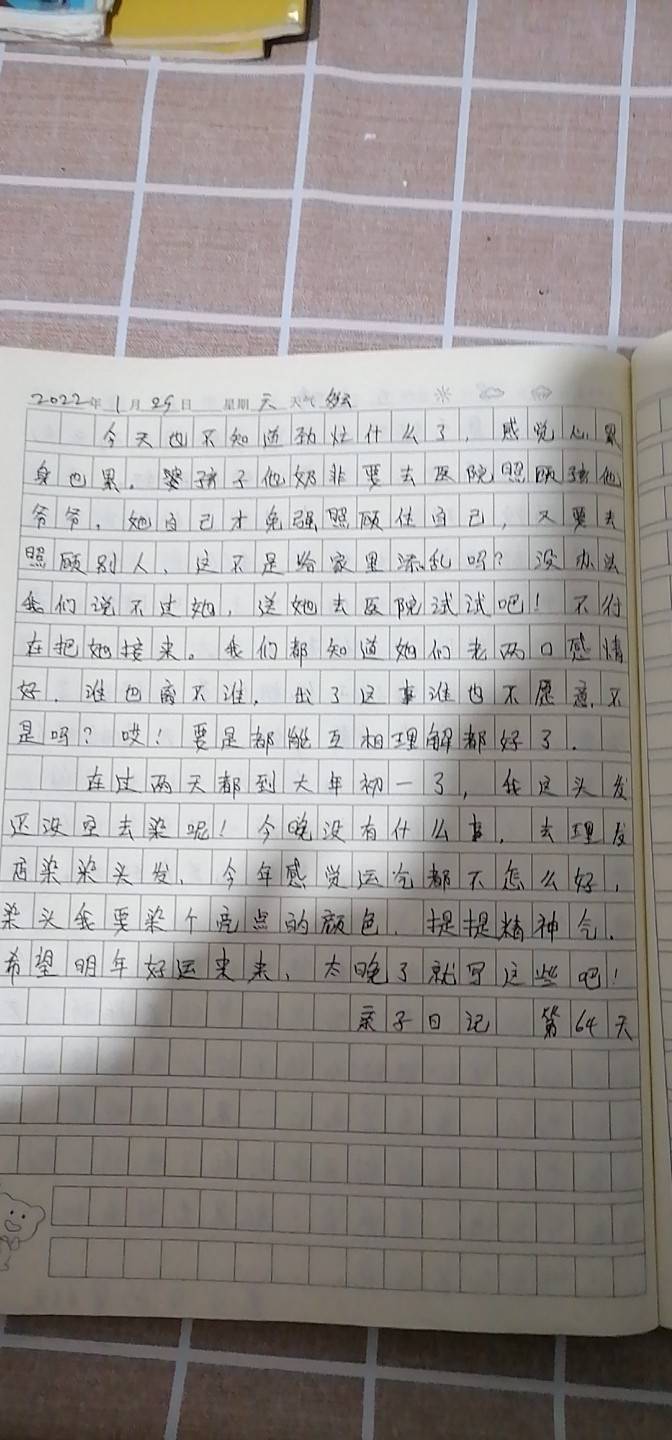 2022年1月29日 星期天 天气
今天也不知道劲忙什么了，感觉心累
身也累。婆孩子他奶非要去医院照顾孩他
爷爷，她自己才免强照顾住自己，又要去
照顾别人，这不是给家里添乱吗？没办法
我们说不过她，送她去医院试试吧！不行
在把她接来。我们都知道她们老两口感情
好，谁也离不谁，出了这事谁也不愿意，不
是吗？哎！要是都能互相理解都好了。
在过两天都到大年初一了，我这头发
还没空去染呢！今晚没有什么事，去理发
店染染头发、今年感觉运气都不怎么好，
染头我要染个亮点的颜色，提提精神气。
希望明年好运来来、太晚了就写这些吧！
亲子日记 第64天